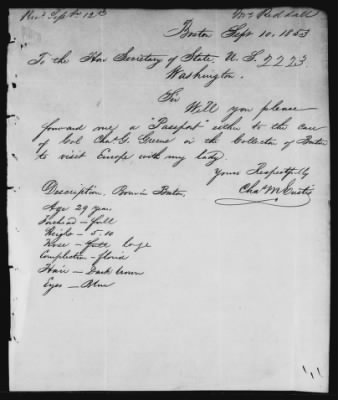 Rec'd Sept 12th
Mr Reddall
Boston Sept. 10. 1853
To the Hon Secretary of State. U. S. 2273
Washington.
Sir
Will you please
forward me a "Passport" either to the care
of Col Chas. G. Greene or the Collector of Boston
to visit Europe with my lady.
Yours Respectfully
Chas. M. Curtis
Description. Born in Boston,
Age 29 years.
Forehead – full
Height – 5.10
Nose – large
Complection – florid
Hair – Dark brown
Eyes – Blue